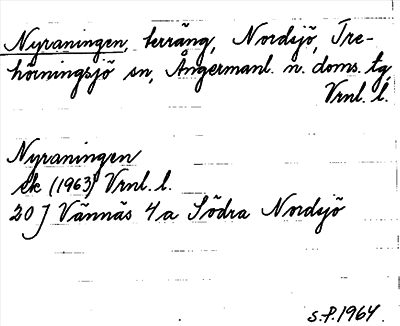 Nyraningen, terräng, Nordsjö, Tre-
hörningsjö sn, Ångermanl. n. doms. tg,
Vrnl. l.
Nyraningen
ek (1963) Vrnl. l.
20 J Vännäs 4a Södra Nordsjö
S.P. 1964.